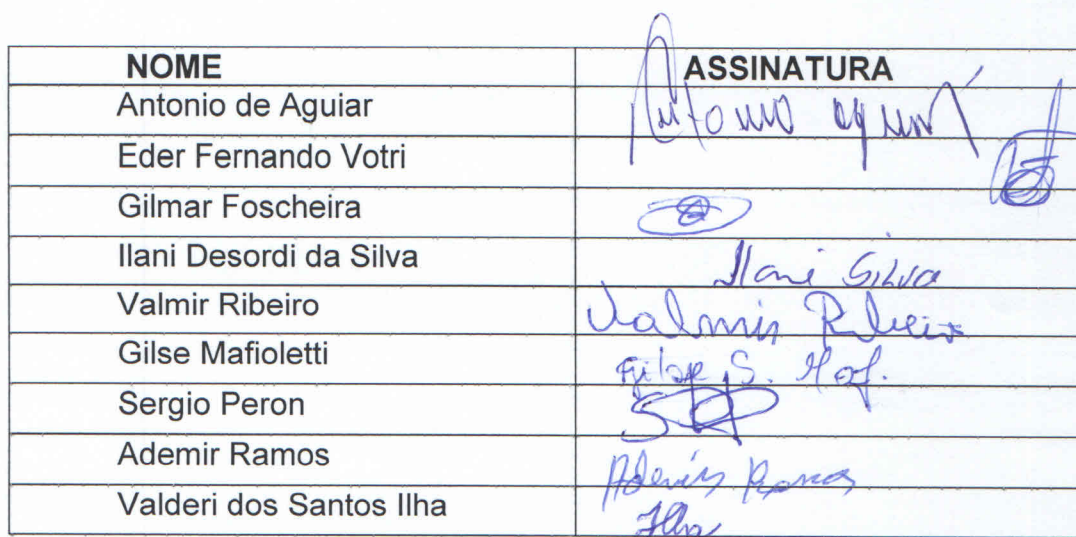 NOME ASSINATURA
Antonio de Aguiar Antonio Aguiar
Eder Fernando Votri
Gilmar Foscheira
Ilani Desordi da Silva Ilani Silva
Valmir Ribeiro Valmir Ribeiro
Gilse Mafioletti Gilse S. Maf.
Sergio Peron
Ademir Ramos Ademir Ramos
Valderi dos Santos Ilha Ilha